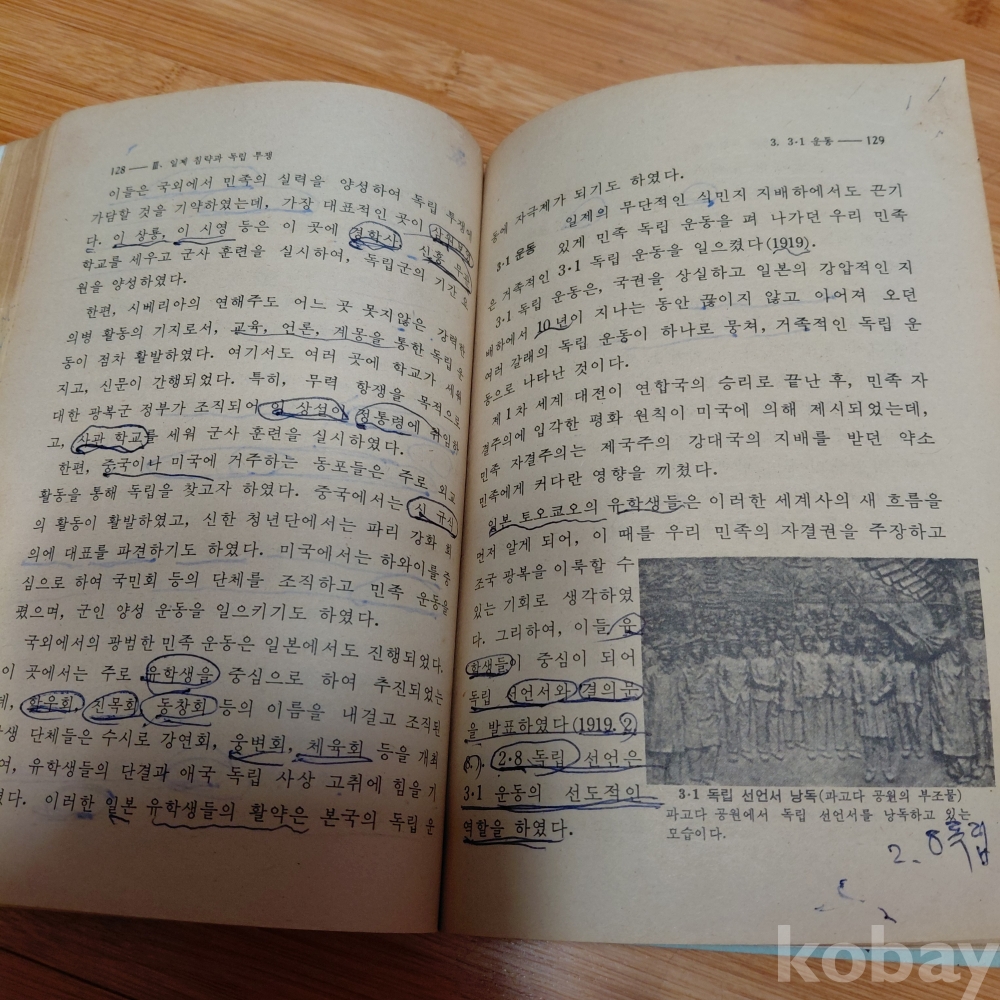 128 — Ⅲ. 일제 침략과 독립 투쟁
이들은 국외에서 민족의 실력을 양성하여 독립 투쟁에
가담할 것을 기약하였는데, 가장 대표적인 곳이
다. 이 상룡, 이 시영 등은 이 곳에 경학사, 신흥 무관
학교를 세우고 군사 훈련을 실시하여, 독립군의 기간 요
원을 양성하였다.
한편, 시베리아의 연해주도 어느 곳 못지않은 강력한
의병 활동의 기지로서, 교육, 언론, 계몽을 통한 독립 운
동이 점차 활발하였다. 여기서도 여러 곳에 학교가 세워
지고, 신문이 간행되었다. 특히, 무력 항쟁을 목적으로
대한 광복군 정부가 조직되어 이 상설이 정통령에 취임하
고, 사관 학교를 세워 군사 훈련을 실시하였다.
한편, 중국이나 미국에 거주하는 동포들은 주로 외교
활동을 통해 독립을 찾고자 하였다. 중국에서는 신 규식
의 활동이 활발하였고, 신한 청년단에서는 파리 강화 회
의에 대표를 파견하기도 하였다. 미국에서는 하와이를 중
심으로 하여 국민회 등의 단체를 조직하고 민족 운동을
폈으며, 군인 양성 운동을 일으키기도 하였다.
국외에서의 광범한 민족 운동은 일본에서도 진행되었다.
이 곳에서는 주로 유학생을 중심으로 하여 추진되었는
데, 학우회, 친목회, 동창회 등의 이름을 내걸고 조직된
학생 단체들은 수시로 강연회, 웅변회, 체육회 등을 개최
하여, 유학생들의 단결과 애국 독립 사상 고취에 힘을 기
울였다. 이러한 일본 유학생들의 활약은 본국의 독립 운
3. 3·1 운동 — 129
동에 자극제가 되기도 하였다.
3·1 운동 일제의 무단적인 식민지 지배하에서도 끈기
있게 민족 독립 운동을 펴 나가던 우리 민족
은 거족적인 3·1 독립 운동을 일으켰다(1919).
3·1 독립 운동은, 국권을 상실하고 일본의 강압적인 지
배하에서 10년이 지나는 동안 끊이지 않고 이어져 오던
여러 갈래의 독립 운동이 하나로 뭉쳐, 거족적인 독립 운
동으로 나타난 것이다.
제 1차 세계 대전이 연합국의 승리로 끝난 후, 민족 자
결주의에 입각한 평화 원칙이 미국에 의해 제시되었는데,
민족 자결주의는 제국주의 강대국의 지배를 받던 약소
민족에게 커다란 영향을 끼쳤다.
일본 토오쿄오의 유학생들은 이러한 세계사의 새 흐름을
먼저 알게 되어, 이 때를 우리 민족의 자결권을 주장하고
조국 광복을 이룩할 수
있는 기회로 생각하였
다. 그리하여, 이들 유
학생들이 중심이 되어
독립 선언서와 결의문
을 발표하였다(1919. 2.
8.). 2·8 독립 선언은
3·1 운동의 선도적인
역할을 하였다.
3·1 독립 선언서 낭독(파고다 공원의 부조물)
파고다 공원에서 독립 선언서를 낭독하고 있는
모습이다.
2. 8 독립
kobay